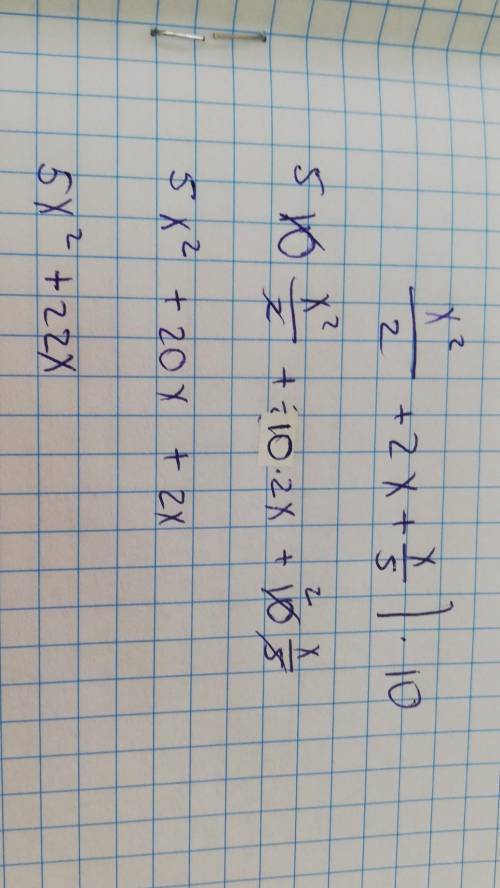 x²/2 + 2x + x/5 | · 10
5 10 x²/2 + 10 · 2x + 10 2 x/5
5x² + 20x + 2x
5x² + 22x